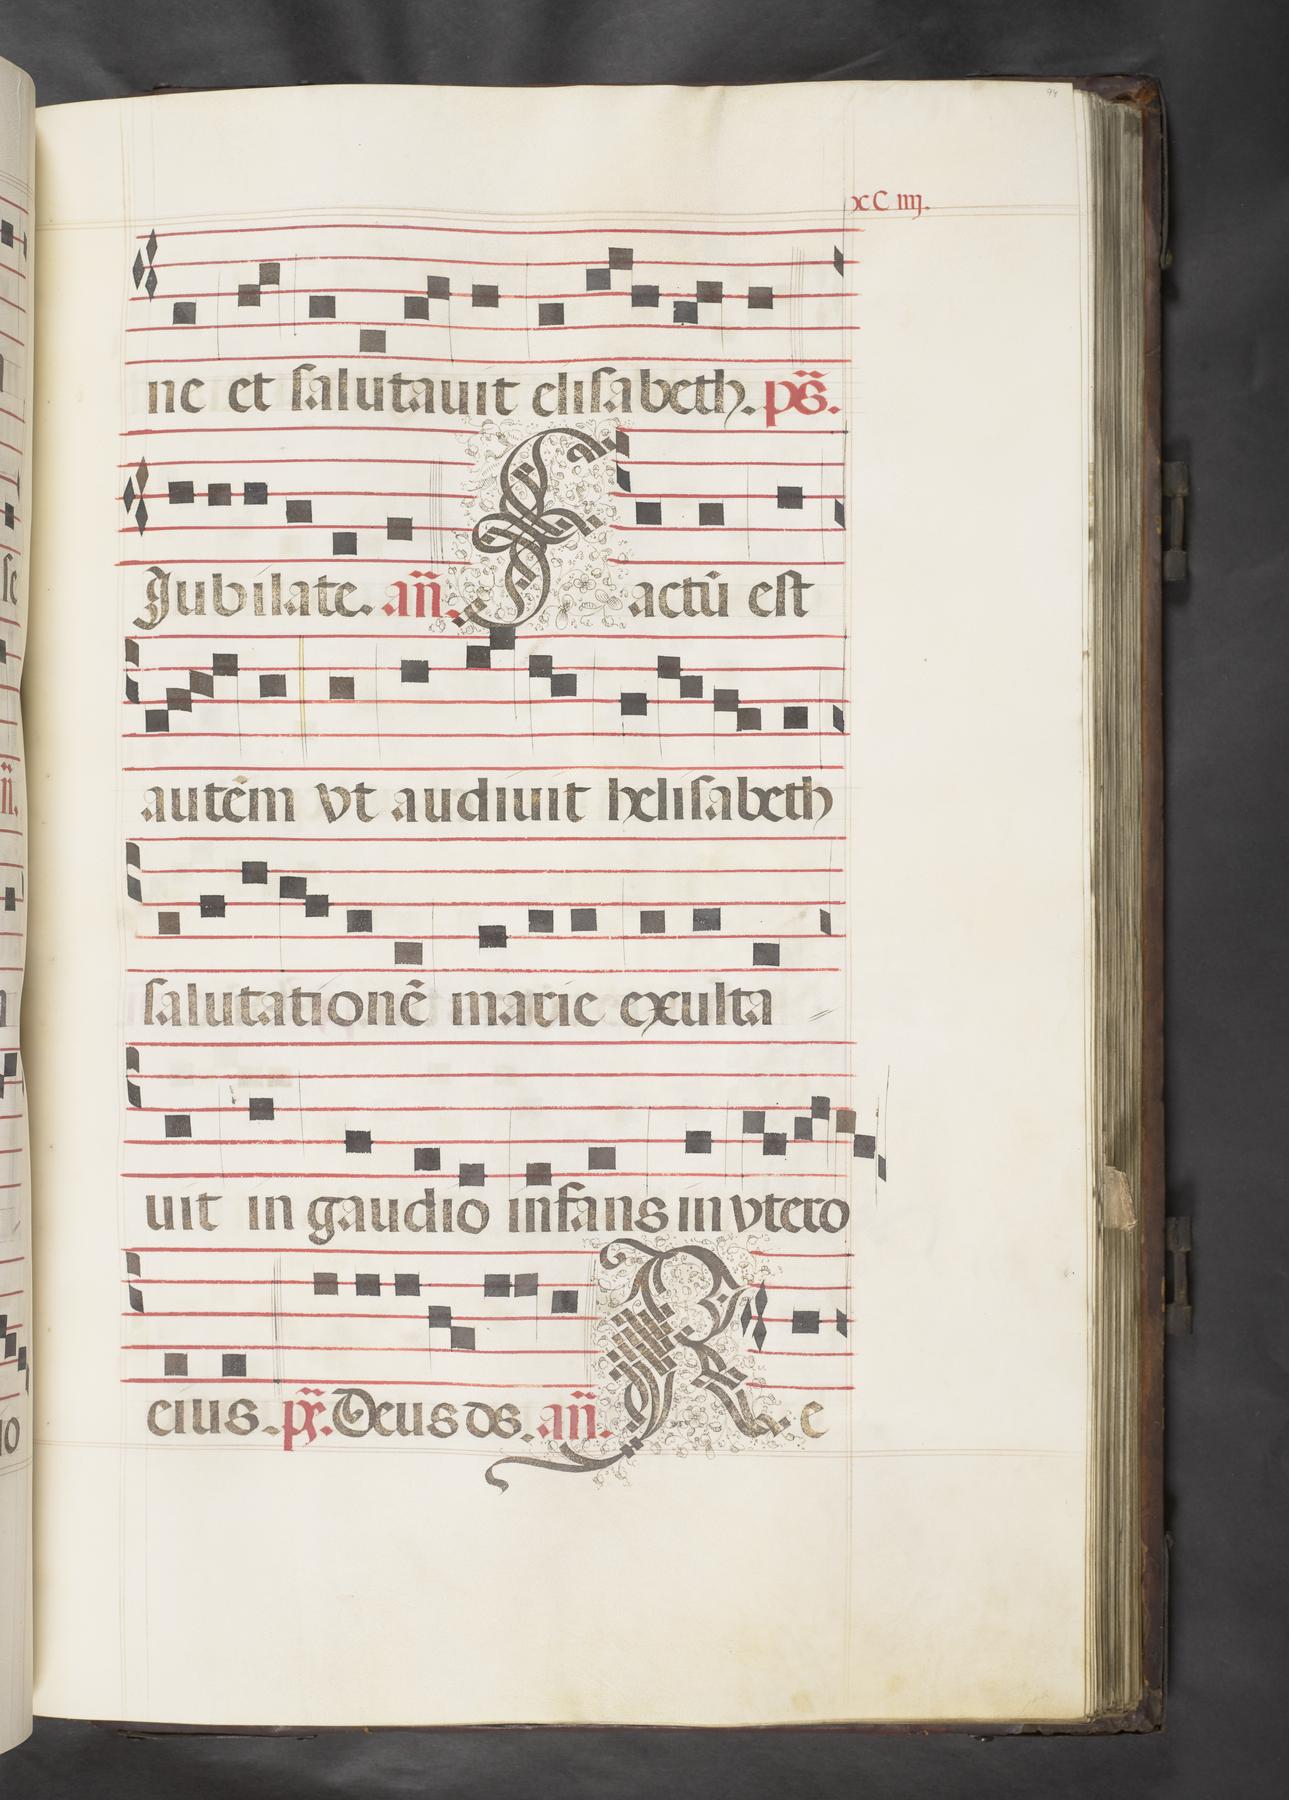 94
xC iiij.
ne et salutauit elisabeth. ps̄.
Jubilate. añ. Factū est
autēm vt audiuit helisabeth
salutationē marie exulta
uit in gaudio infans in vtero
eius. ps̄. Deus ds. añ. Re